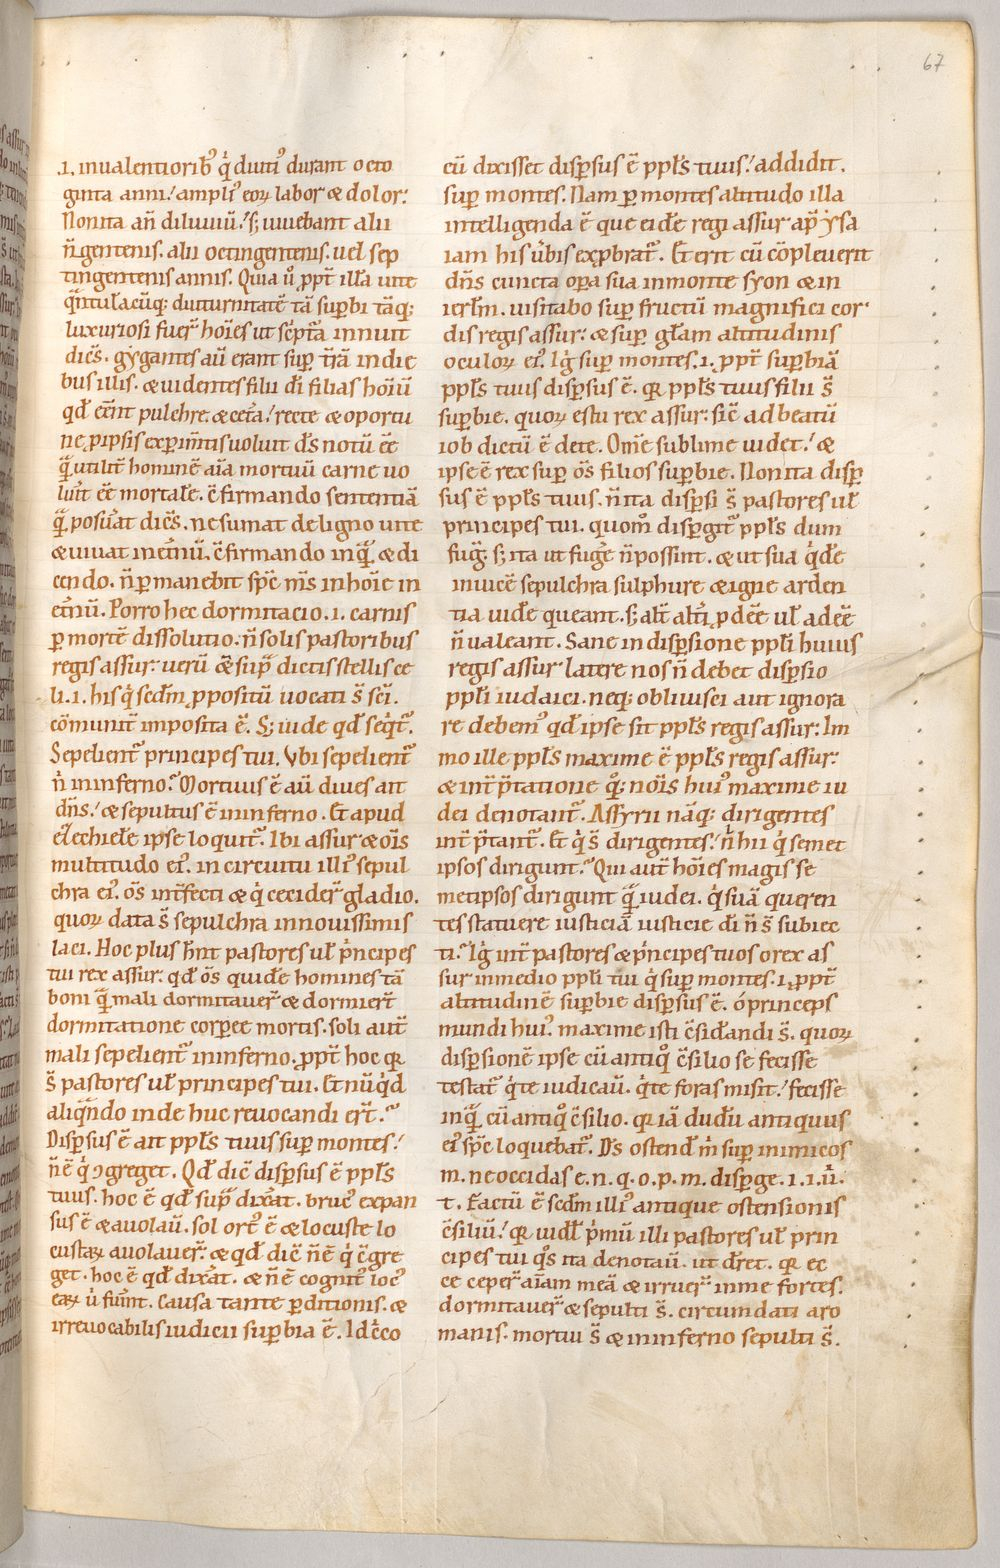 67
.i. inualentiorib᾽ q̇ diuti᾽ durant octo
ginta anni.᾽ ampli᾽ eoꝝ labor & dolor:
Non ita añ diluuiū.᾽ sꝫ uiuebant alii
n̄gentenis. alii octingentenis. uel sep
tingentenis annis. Quia u̾ ꝓpt̄ illa uite
q̄ntulacūq; diuturnitatē tā supbi tāq;
luxuriosi fuer̄ hoīes ut sc̄pt̄a innuit
dicēs. gygantes aū erant sup̄ t̄rā in die
bus illis. & uidentes filii di̅ filias hoīū
qd̄ eēnt pulchre. & cet̄a.᾽ recte & oportu
ne ꝓ ipsis exꝑim̄tis uoluit d̅s notū eē
q̄ utilit̄ hominē aīa mortuū carne uo
luit̄ eē mortale. c̄firmando sententiā
q̄ posuat̄ dicēs. ne sumat de ligno uite
& uiuat inet̄nū. c̄firmando inq̄. & di
cendo. n̄ ꝑmanebit spc̄ m̄s in hoīe in
et̄nū. Porro hec dormitacio. i. carnis
ꝑ mortē dissolutio. n̄ solis pastoribus
regis assur. uerū & sup̄dictis stellis ce
li. i. his q̇ sed̄m ꝓpositū uocati s̄ sc̄i.
cōmunit̄ imposita ē. Sꝫ iude qd̄ seqt̄.
Sepelient̄ principes tui. Vbi sepelient̄
n̄ in inferno.᾽ Mortuus ē aū diues ait
dn̄s.᾽ & sepultus ē in inferno. Et apud
ezechiele ipse loquit̄. Ibi assur & oīs
multitudo ei᾽. in circuitu illi᾽ sepul
chra ei᾽. oēs int̄fecti & q̇ cecider̄ gladio.
quoꝝ data s̄ sepulchra in nouissimis
laci. Hoc plus hn̄t pastores ul̄ p̄ncipes
tui rex assur. qd̄ oēs quide homines tā
boni q̄ mali dormitauer̄ & dormier̄t
dormitatione corꝑee mortis. soli aut̄
mali sepelient̄ in inferno. ꝓpt̄ hoc qꝛ
s̄ pastores ul̄ principes tui. Et nūq̇d
aliq̄ndo inde huc reuocandi er̄t.᾽
Dispsus ē ait ppl̄s tuus sup̄ montes.᾽
n̄ ē q̇ ꝯgreget. Qd̄ dic̄ dispsus ē ppl̄s
tuus. hoc ē qd̄ sup̄ dixat̄. bruc᾽ expan
sus ē & auolau̅. sol ort᾽ ē & locuste lo
custaꝝ auolauer̄. & qd̄ dic̄ n̄ ē q̇ c̄gre
get. hoc ē qd̄ dixat̄. & n̄ ē cognit᾽ loc᾽
eaꝝ u̇ fuīnt. Causa tante ꝑditionis. &
irreuocabilis iudicii supbia ē. Idc̄co
cū dixisset dispsus ē ppl̄s tuus.᾽ addidit.
sup̄ montes. Nam ꝑ montes altitudo illa
intelligenda ē que eide regi assur ap̄ ysa
iam his u̾bis exꝓbrat̄. Et erit cū cōpleuerit
dn̄s cuncta oꝑa sua in monte syon & in
ierl̄m. uisitabo sup̄ fructū magnifici cor
dis regis assur. & sup̄ gl̄am altitudinis
oculoꝝ ei᾽. Iġ sup̄ montes. i. ꝓpt̄ supbiā
ppl̄s tuus dispsus ē. qꝛ ppl̄s tuus filii s̄
supbie. quoꝝ es tu rex assur: sic̄ ad beatū
iob dictū ē de te. Omē sublime uidet.᾽ &
ipse ē rex sup̄ oēs filios supbie. Non ita disp
sus ē ppl̄s tuus. n̄ ita dispsi s̄ pastores ul̄
principes tui. quom̄ dispgit̄ ppl̄s dum
fuḡ. sꝫ ita ut fuge n̄ possint. & ut sua q̇de
inuicē sepulchra sulphure & igne arden
tia uide queant. sꝫ alt̄ alt̄i ꝓdeē ul̄ adeē
n̄ ualeant. Sane in dispsione ppl̄i huius
regis assur latere nos n̄ debet dispsio
ppl̄i iudaici. neq; obliuisci aut ignora
re debem᾽ qd̄ ipse sit ppl̄s regis assur: Im
mo ille ppl̄s maxime ē ppl̄s regis assur:
& int̄p̄tatione qo̊; nōis hui᾽ maxime iu
dei denotant̄. Assyrii nāq; dirigentes
int̄p̄tant̄. Et q̇ s̄ dirigentes.᾽ n̄ hii q̇ semet
ipsos dirigunt.᾽ Qui aut̄ hoīes magis se
metipsos dirigunt q̄ iudei. q̇ suā queren
tes statuere iusticiā iusticie di̅ n̄ s̄ subiec
ti.᾽ Iġ int̄ pastores & p̄ncipes tuos o rex as
sur in medio ppl̄i tui q̇ sup̄ montes. i. ꝓpt̄
altitudinē supbie dispsus ē. o princeps
mundi hui᾽. maxime isti c̄siderandi s̄. quoꝝ
dispsionē ipse cū antiq̊ c̄silio se fecisse
testat̄ q̇ te iudicau̅. q̇ te foras misit.᾽ fecisse
inq̄ cū antiq̊ c̄silio. qꝛ iā dudū antiquus
ei᾽ spc̄ loquebat̄. D̅s ostend̄ m̄ sup̄ inimicos
m. ne occidas e. n. q. o. p. m. dispge. i. i. u̇.
t. Factū ē sed̄m illi᾽ antique ostensionis
c̄siliū.᾽ qꝛ uidl̄ p̄mū illi pastores ul̄ prin
cipes tui q̊s ita denotau̅. ut dr̄et. qꝛ ec
ce ceper̄ aīam meā & irruer̄ in me fortes.
dormitauer̄ & sepulti s̄. circumdati aro
manis. mortui s̄ & in inferno sepulti s̄.